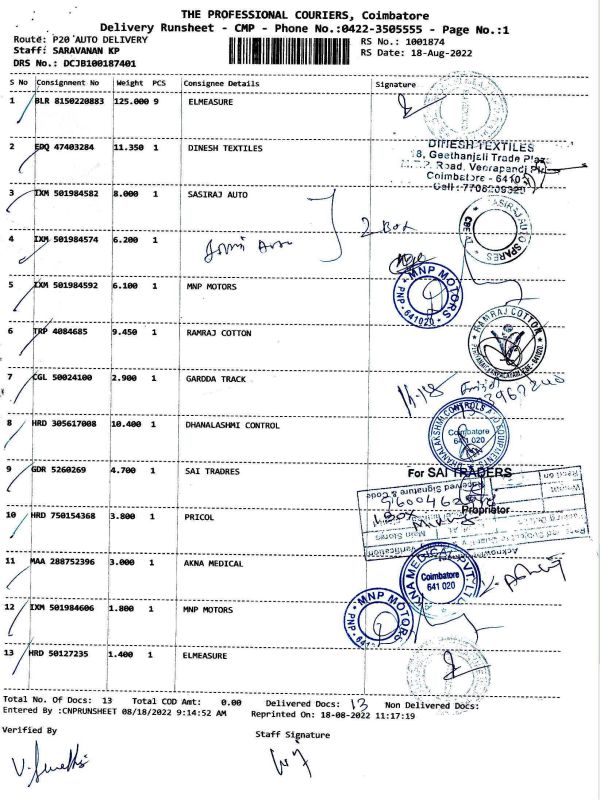 THE PROFESSIONAL COURIERS, Coimbatore
Delivery Runsheet - CMP - Phone No.:0422-3505555 - Page No.:1
Route: P20 AUTO DELIVERY
RS No.: 1001874
Staff: SARAVANAN KP
RS Date: 18-Aug-2022
DRS No.: DCJB100187401
S No Consignment No Weight PCS Consignee Details Signature
1 BLR 8150220883 125.000 9 ELMEASURE
2 EDQ 47403284 11.350 1 DINESH TEXTILES
DINESH TEXTILES
18, Geethanjali Trade Plaza
Road, Veerapandi
Coimbatore - 6410
Cell : 7708209320
3 IXM 501984582 8.000 1 SASIRAJ AUTO
2 Box
SASIRAJ AUTO SPARES
4 IXM 501984574 6.200 1
5 IXM 501984592 6.100 1 MNP MOTORS
MNP MOTORS
PNP - 641020
6 TRP 4084685 9.450 1 RAMRAJ COTTON
RAMRAJ COTTON
7 CGL 50024100 2.900 1 GARDDA TRACK
8 HRD 305617008 10.400 1 DHANALASHMI CONTROL
Coimbatore
641 020
9 GDR 5260269 4.700 1 SAI TRADRES
For SAI TRADERS
Received Signature & Code
Proprietor
Main Stores
10 HRD 750154368 3.800 1 PRICOL
11 MAA 288752396 3.000 1 AKNA MEDICAL
AKNA MEDICAL PVT. LTD
Coimbatore
641 020
12 IXM 501984606 1.800 1 MNP MOTORS
MNP MOTORS
13 HRD 50127235 1.400 1 ELMEASURE
Total No. Of Docs: 13 Total COD Amt: 0.00 Delivered Docs: 13 Non Delivered Docs:
Entered By :CNPRUNSHEET 08/18/2022 9:14:52 AM Reprinted On: 18-08-2022 11:17:19
Verified By
Staff Signature